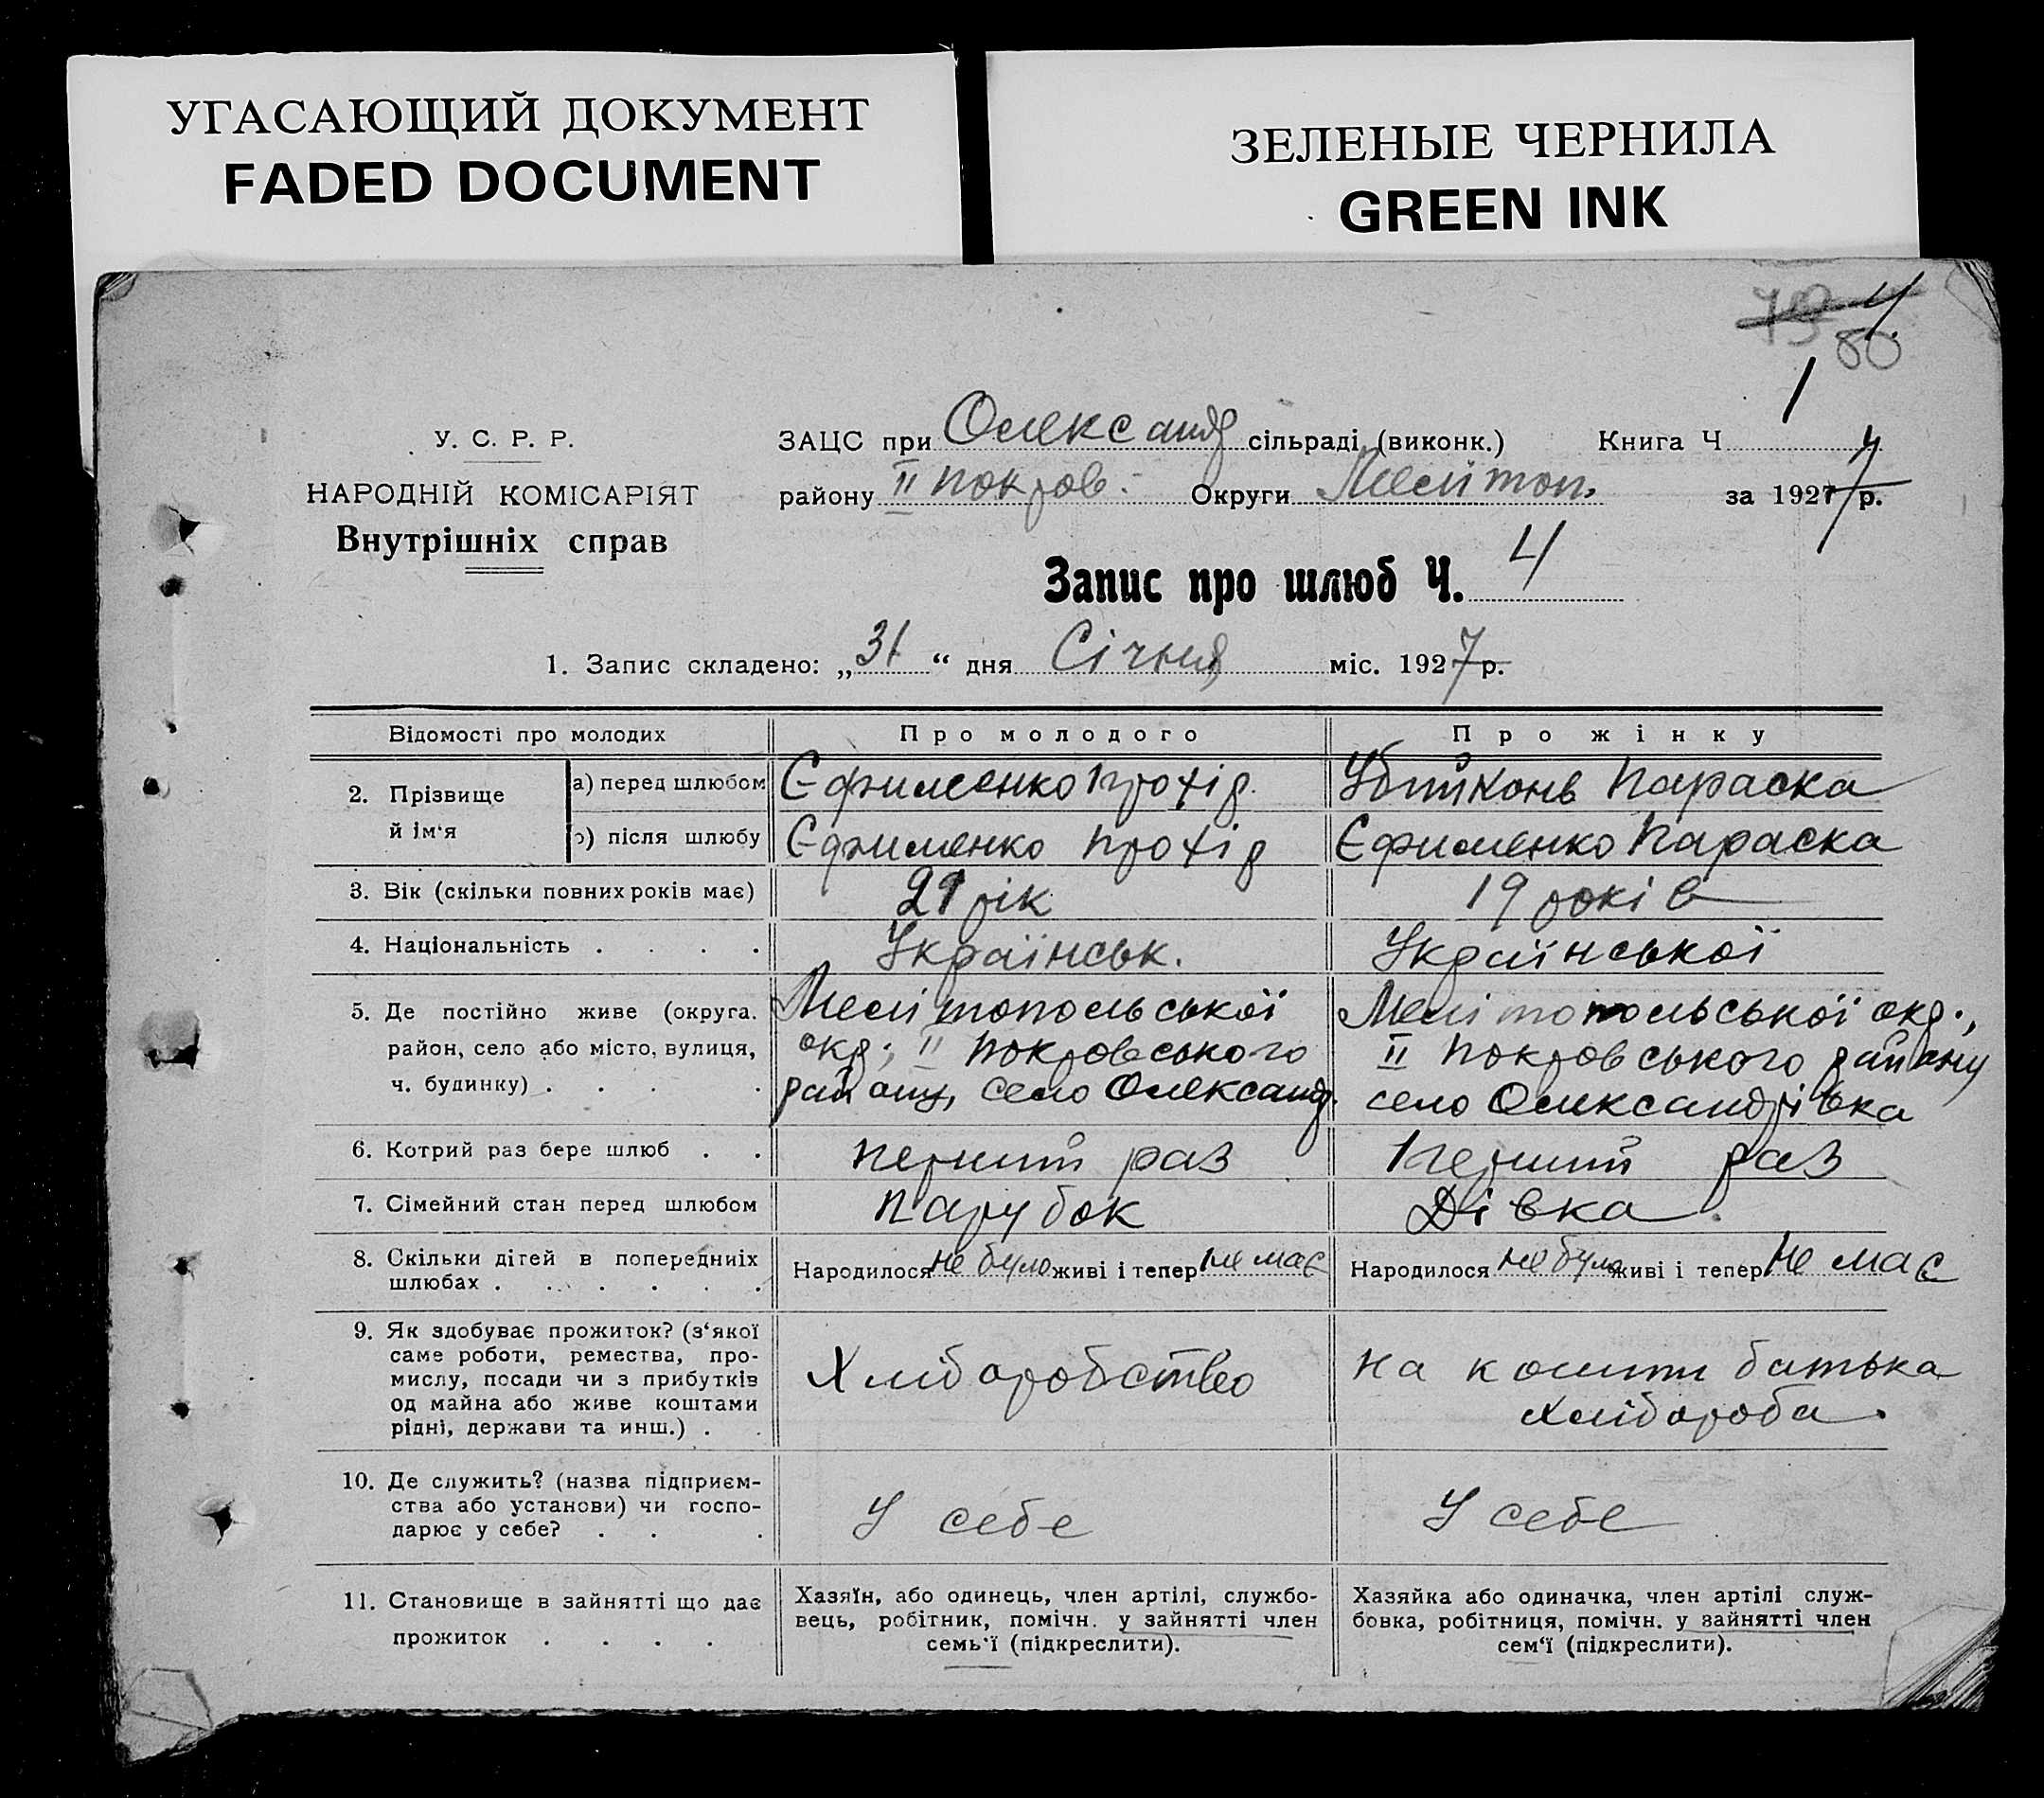 УГАСАЮЩИЙ ДОКУМЕНТ
FADED DOCUMENT
ЗЕЛЕНЫЕ ЧЕРНИЛА
GREEN INK
80
У. С. Р. Р.
НАРОДНІЙ КОМІСАРІЯТ
Внутрішніх справ
ЗАЦС при Олександ сільраді (виконк.) Книга Ч. 1
району II Покров. Округи Меліто​п. за 1927 р.
Запис про шлюб Ч. 4
1. Запис складено: „31“ дня Січня міс. 1927 р.
Відомості про молодих
Про молодого
Про жінку
2. Прізвище й ім‘я
а) перед шлюбом
Єфименко Прохід.
Убийконь Параска
б) після шлюбу
Єфименко Прохід
Єфименко Параска
3. Вік (скільки повних років має)
21 рік
19 років
4. Національність . . . .
Українськ.
Української
5. Де постійно живе (округа.
район, село або місто, вулиця,
ч. будинку) . . . .
Мелітопольської
окр., II Покровського
району, село Олександ.
Мелітопольської окр.,
II Покровського району
село Олександрівка
6. Котрий раз бере шлюб . .
перший раз
перший раз
7. Сімейний стан перед шлюбом
парубок
Дівка
8. Скільки дітей в попередніх
шлюбах . . . . . .
Народилося не було живі і тепер не має
Народилося не було живі і тепер не має
9. Як здобуває прожиток? (з‘якої
саме роботи, ремества, про-
мислу, посади чи з прибутків
од майна або живе коштами
рідні, держави та инш.) . .
Хліборобство
на кошти батька
хлібороба.
10. Де служить? (назва підприєм-
ства або установи) чи госпо-
дарює у себе? . . .
У себе
У себе
11. Становище в зайнятті що дає
прожиток . . . .
Хазяїн, або одинець, член артілі, службо-
вець, робітник, помічн. у зайнятті член
семь‘ї (підкреслити).
Хазяйка або одиначка, член артілі служ-
бовка, робітниця, помічн. у зайнятті член
сем‘ї (підкреслити).